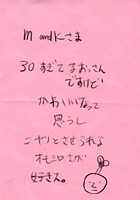 m and kさま
30すぎてるおっさん
ですけど
かわいいなって
思うし
ニヤリとさせられる
オモシロさが
好きス。